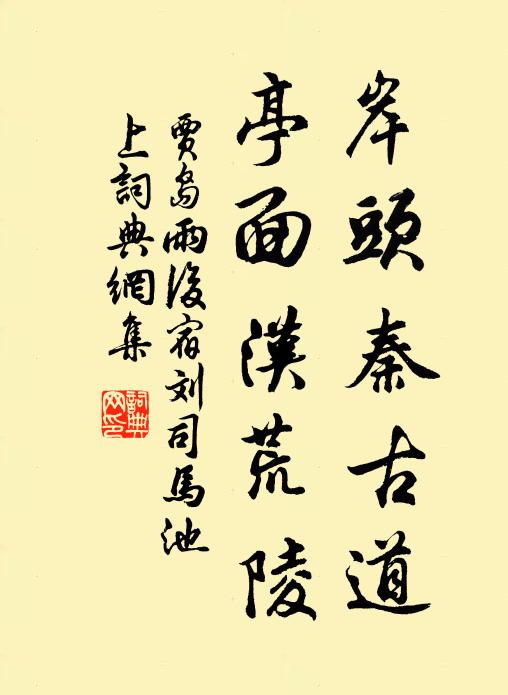 岸頭秦古道
亭面漢荒陵
賈島雨後宿刘司馬池
上詞典網集
詞典
网印